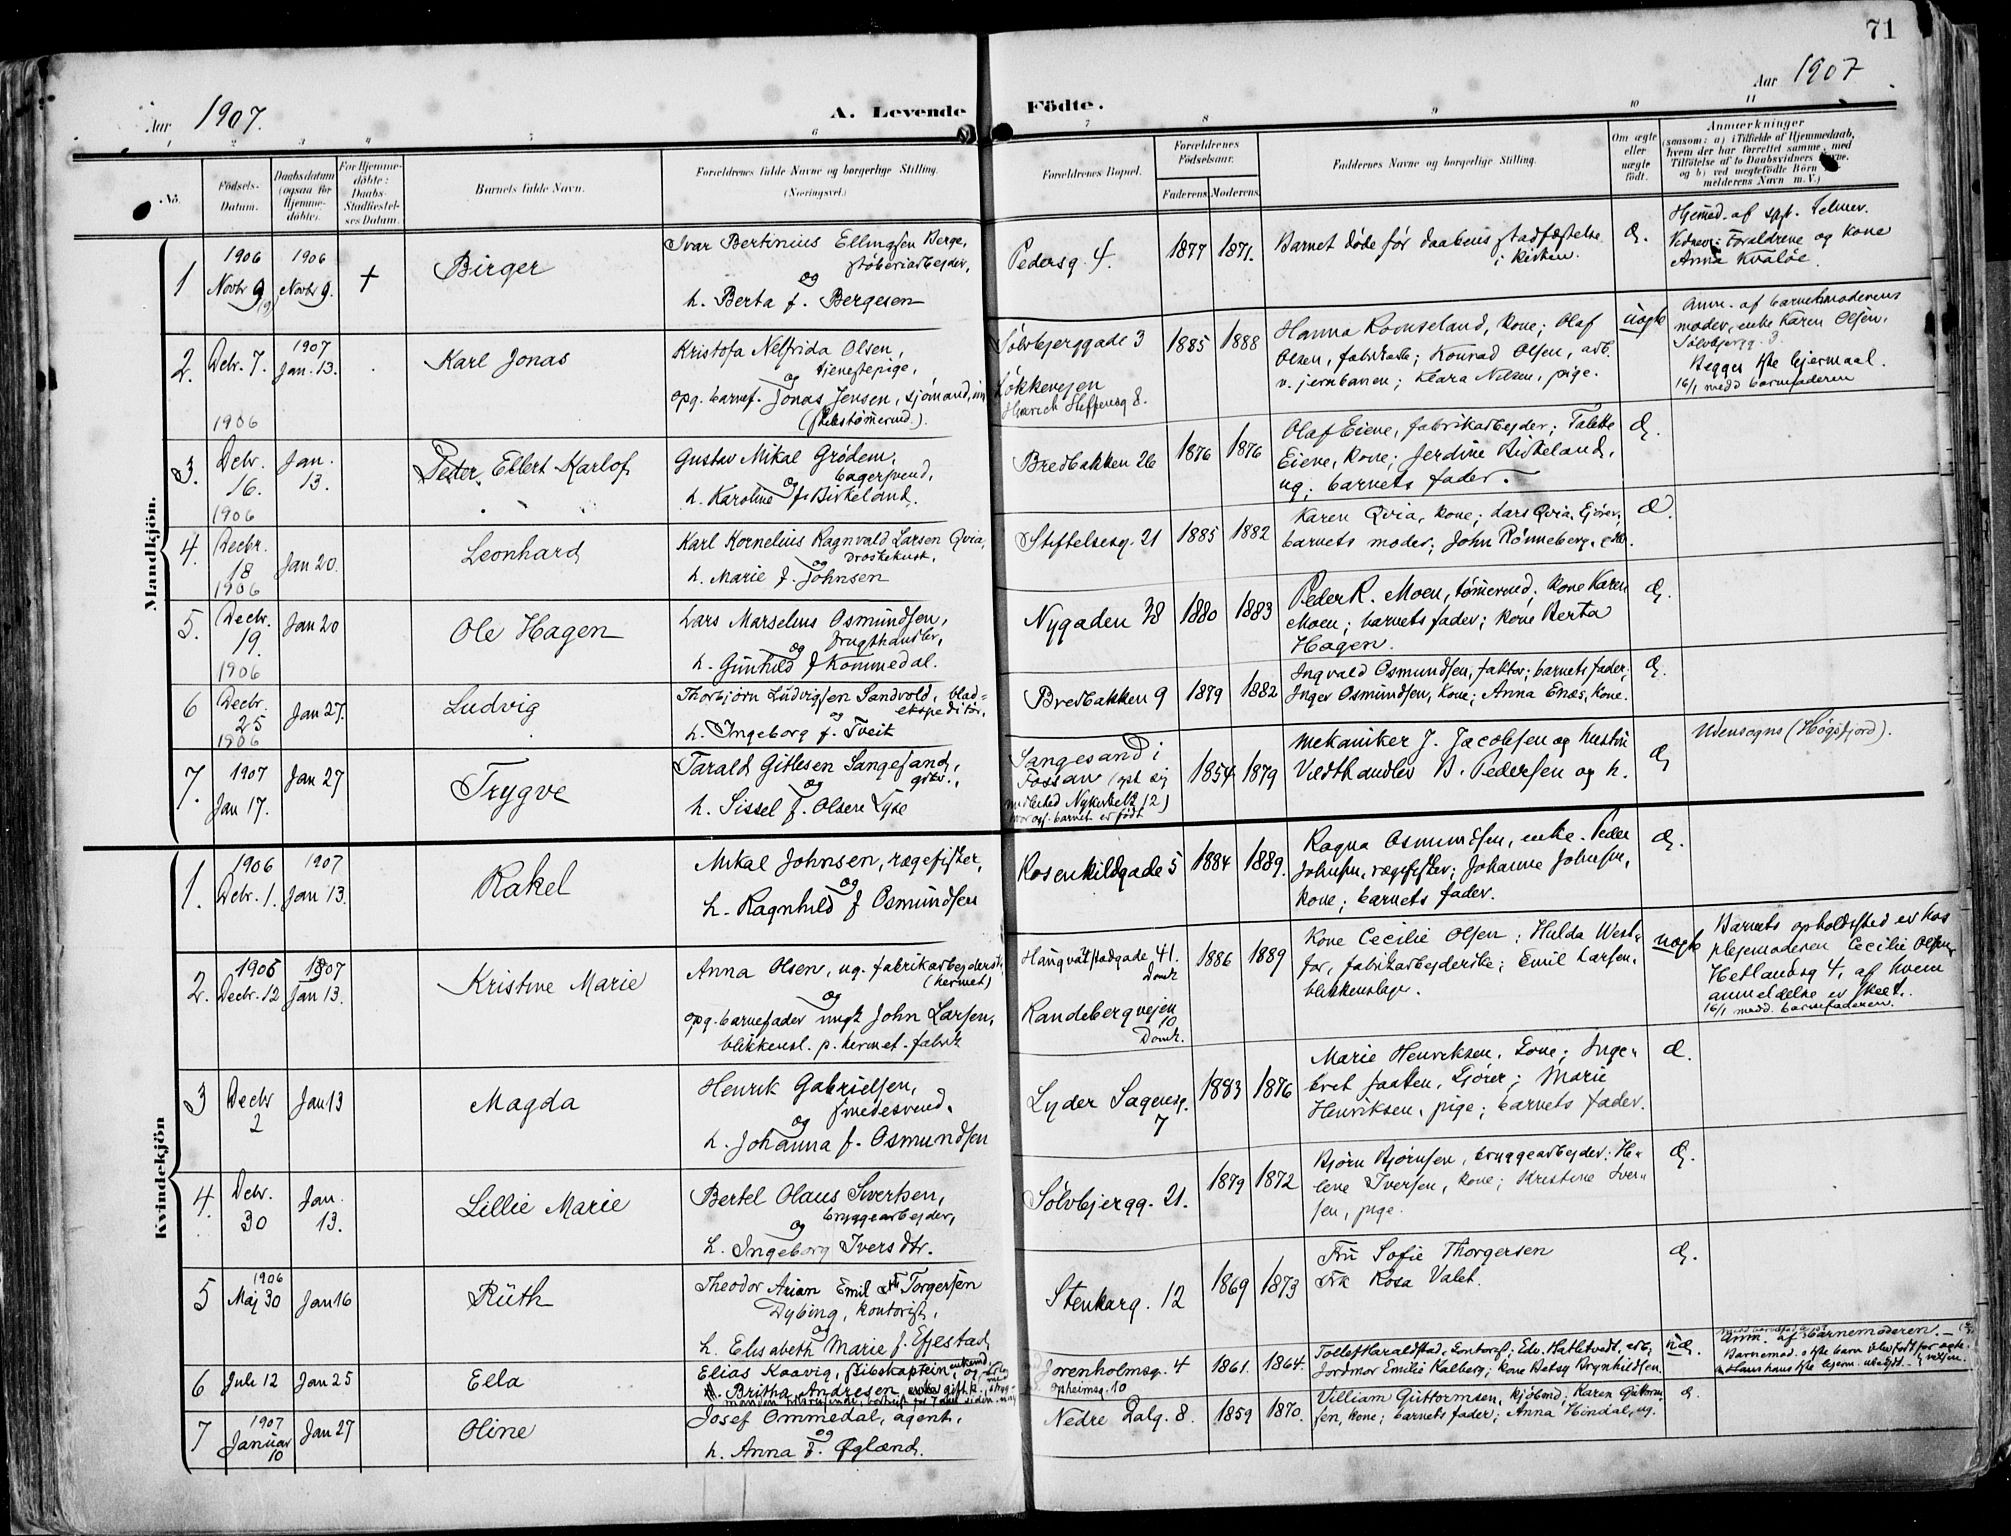 71
Aar 1907.
A. Levende Födte.
Aar 1907
1 2 3 4 5 6 7 8 9 10 11
No.
Födsels-Datum.
Daabsdatum (ogsaa for Hjemme-döbte).
For Hjemme-döbte: Daabs-Stadfæstel-ses Datum.
Barnets fulde Navn.
Forældrenes fulde Navne og borgerlige Stilling. (Næringsvei.)
Forældrenes Bopæl.
Forældrenes Födselsaar.
Faderens Moderens
Faddernes Navne og borgerlige Stilling.
Om ægte eller uægte födt.
Anmærkninger
(saasom: a) i Tilfælde af Hjemmedaab, hvem der har forrettet samme, med Tilföielse af to Daabsvidners Navne. og b) ved uægtefödte Börn An-melderens Navn m. V.)
Mandkjön.
1 1906 Novbr 9 1906 Novbr 9. + Birger
Ivar Bertinius Ellingsen Berge,
støberiarbejder,
og
h. Berta f. Bergesen
Pedersg. 4. 1877 1871.
Barnet døde før daabens stadfæstelse
i kirken.
Æ.
Hjemed. af
Vidner: Forældrene og kone
Anna Kvaløe.
2. Decbr. 7. 1907 Jan. 13. Karl Jonas
Kristofa Nelfrida Olsen,
tjenestepige,
og
opg. barnef. Jonas Jensen, sjømand,
(skibstømermd.).
Sølvbjerggade 3
Løkkevejen
1885 1888
Hanna Romseland, kone; Olaf
Olsen, fabrikarb; Konrad Olsen, arb.
v. jernbanen; Klara Nilsen, pige.
uægte
Anm. af barnemoderens
moder, enke Karen Olsen,
Sølvbjergg. 3.
Begges 1ste lejermaal.
16/1 medd barnefaderen
3. 1906 Decbr. 16. Jan. 13. Peder Ellert Karlof
Gustav Mikal Grødem,
bagersvend,
og
h. Karoline f. Birkeland.
Bredbakken 26 1876 1876
Olaf Eiene, fabrikarbejder; Talette
Eiene, kone; Jerdine Birkeland,
ug; barnets fader.
Æ.
4. 1906 Decbr. 18 Jan 20. Leonhard
Karl Kornelius Ragnvald Larsen Qvia,
droskekusk,
og
h. Marie f. Johnsen
Stiftelsesg. 21 1885 1882
Karen Qvia, kone; Lars Qvia, Gjører;
barnets moder; John Rønneberg,
Æ.
5. 1906 Decbr. 19. Jan 20 Ole Hagen
Lars Marselius Osmundsen,
frugthandler,
og
h. Gunhild f Kommedal.
Nygaden 38 1880 1883
Peder R. Moen, tømermd; kone Karen
Moen; barnets fader; kone Berta
Hagen.
Æ.
6 1906 Decbr. 25 Jan 27. Ludvig
Thorbjørn Ludvigsen Sandvold, blad=
ekspeditør,
og
h. Ingeborg f. Tveit
Bredbakken 9 1879 1882
Ingvald Osmundsen, faktor; barnets fader;
Inger Osmundsen, kone; Anna Enæs, kone.
Æ.
7. 1906 1907 Jan 17. Jan 27 Trygve
Tarald Gitlesen Sangesand,
og
h. Sissel f. Olsen Lyse
Sangesand i
Fossan
hvor barnet er født
1854 1879
Mekaniker J. Jacobsen og hustru
Vedthandler B. Pedersen og h.
Æ
Udensogns (Høgsfjord).
Kvindekjön
1. 1906 Decbr. 1. 1907 Jan 13. Rakel
Mikal Johnsen, rægefisker,
og
h. Ragnhild f Osmundsen
Rosenkildgade 5 1884 1889.
Ragna Osmundsen, enke. Peder
Johnsen, rægefisker; Johanne Johnsen,
kone; barnets fader.
Æ.
2. 1906 Decbr. 12 1907 Jan 13. Kristine Marie
Anna Olsen, ug. fabrikarbejderske,
(hermet)
og
opg. barnefader ungk John Larsen,
blikkensl. p. hermet. fabrik
Haugvaldstadgade 41.
Domk
Randebergvejen
10
Domk.
1886 1889
Kone Cecilie Olsen; Hulda West-
for, fabrikarbejderske; Emil Larsen,
blikkenslager.
uægte
Barnets opholdssted er hos
plejemoderen Cecilie Olsen,
Hetlandsg 4, af hvem
anmeldelse er skeet.
16/1 medd. barnefaderen.
3 Decbr 2 Jan 13 Magda
Henrik Gabrielsen,
smedesvend,
og
h. Johanna f. Osmundsen
Lyder Sagensg. 7 1883 1876
Marie Henriksen, kone; Inge-
bret Faaten, Gjører; Marie
Henriksen, pige; barnets fader.
Æ.
4. Decbr. 30 Jan. 13. Lillie Marie
Bertel Olaus Sivertsen,
bryggearbejder,
og
h. Ingeborg Iversdtr.
Sølvbjergg. 21. 1879 1872
Bjørn Bjørnsen, bryggearbejder; He-
lene Iversen, kone; Kristine Iver-
sen, pige.
Æ.
5 1906 Maj 30 Jan 16 Ruth
Theodor Arian Emil Torgersen
Dybing, kontorist,
og
h. Elisabeth Marie f. Efjestad
Stenkarg. 12 1869 1873
Fru Sofie Thorgersen
Frk Rosa Valet.
Æ.
6 Juli 12 Jan 25 Ella
Elias Kaavig, skibskaptein, enkemd,
Britha Andresen
Jorenholmsg. 4
Opheimsg. 10
1861. 1864.
Tollef Haraldstad, kontorist; Edv. Hatletvedt, arb;
Jordmor Emilie Kalberg; kone Betsy Brynhildsen.
uæ.
Anm. af barnemoderen.
7 1907 Januar 10 Jan 27 Oline
Josef Ommedal, agent,
og
h. Anna f. Øglænd.
Nedre Dalg. 8. 1859 1870.
Villiam Guttormsen, kjøbmd; Karen Guttorm-
sen, kone; barnets fader; Anna Hindal, ug.
Æ.